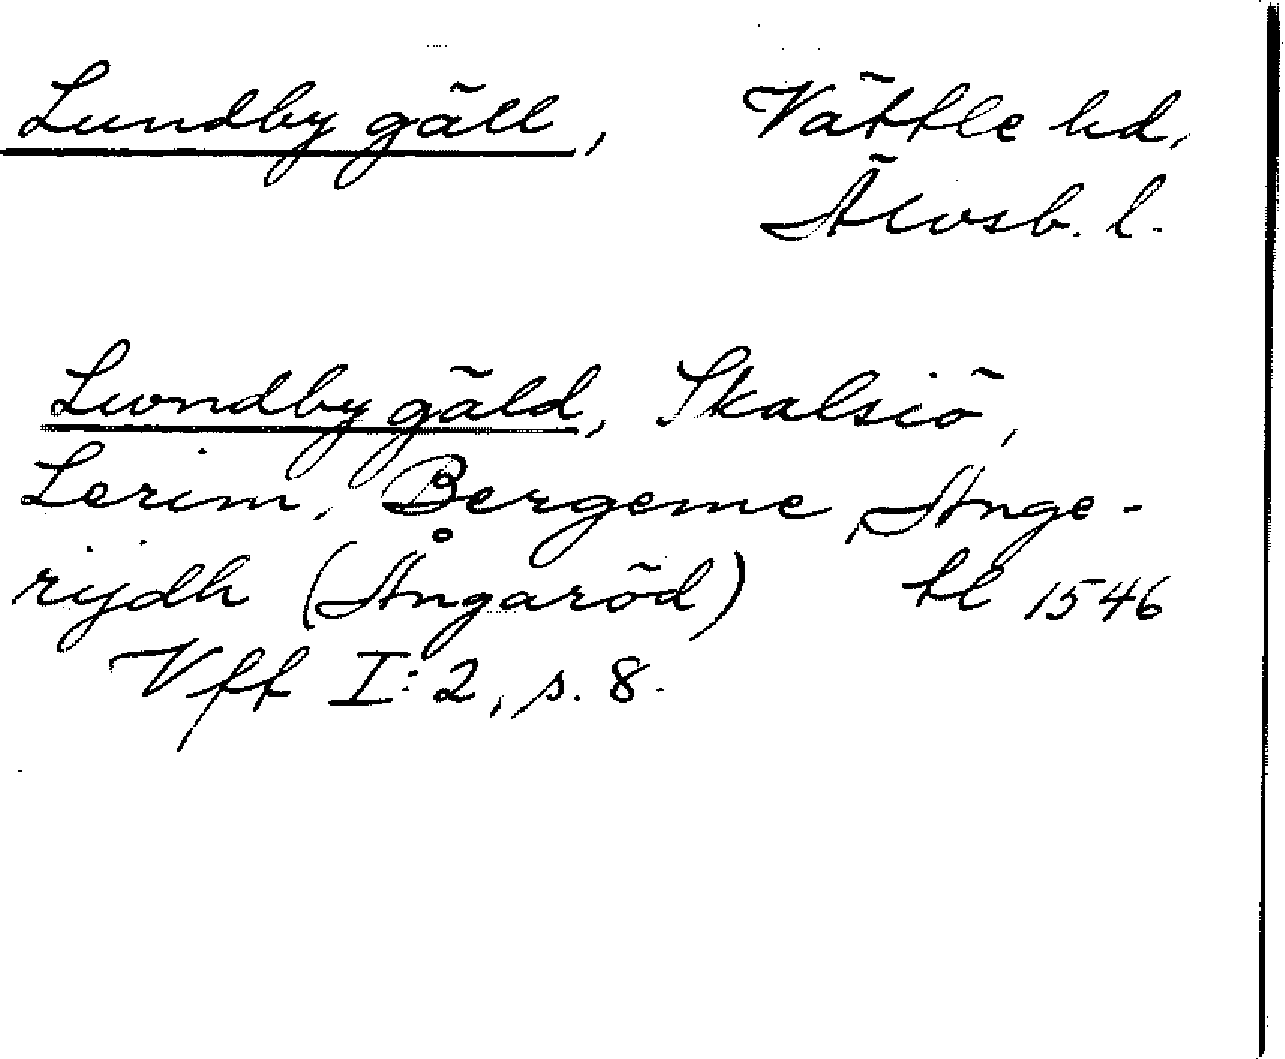 Lundby gäll, Vättle hd,
Älvsb. l.
Lwndby gäld, Skalsiö,
Lerim, Bergeme, Ange-
rijdh (Ångaröd) tl 1546
Vff I:2, s. 8.